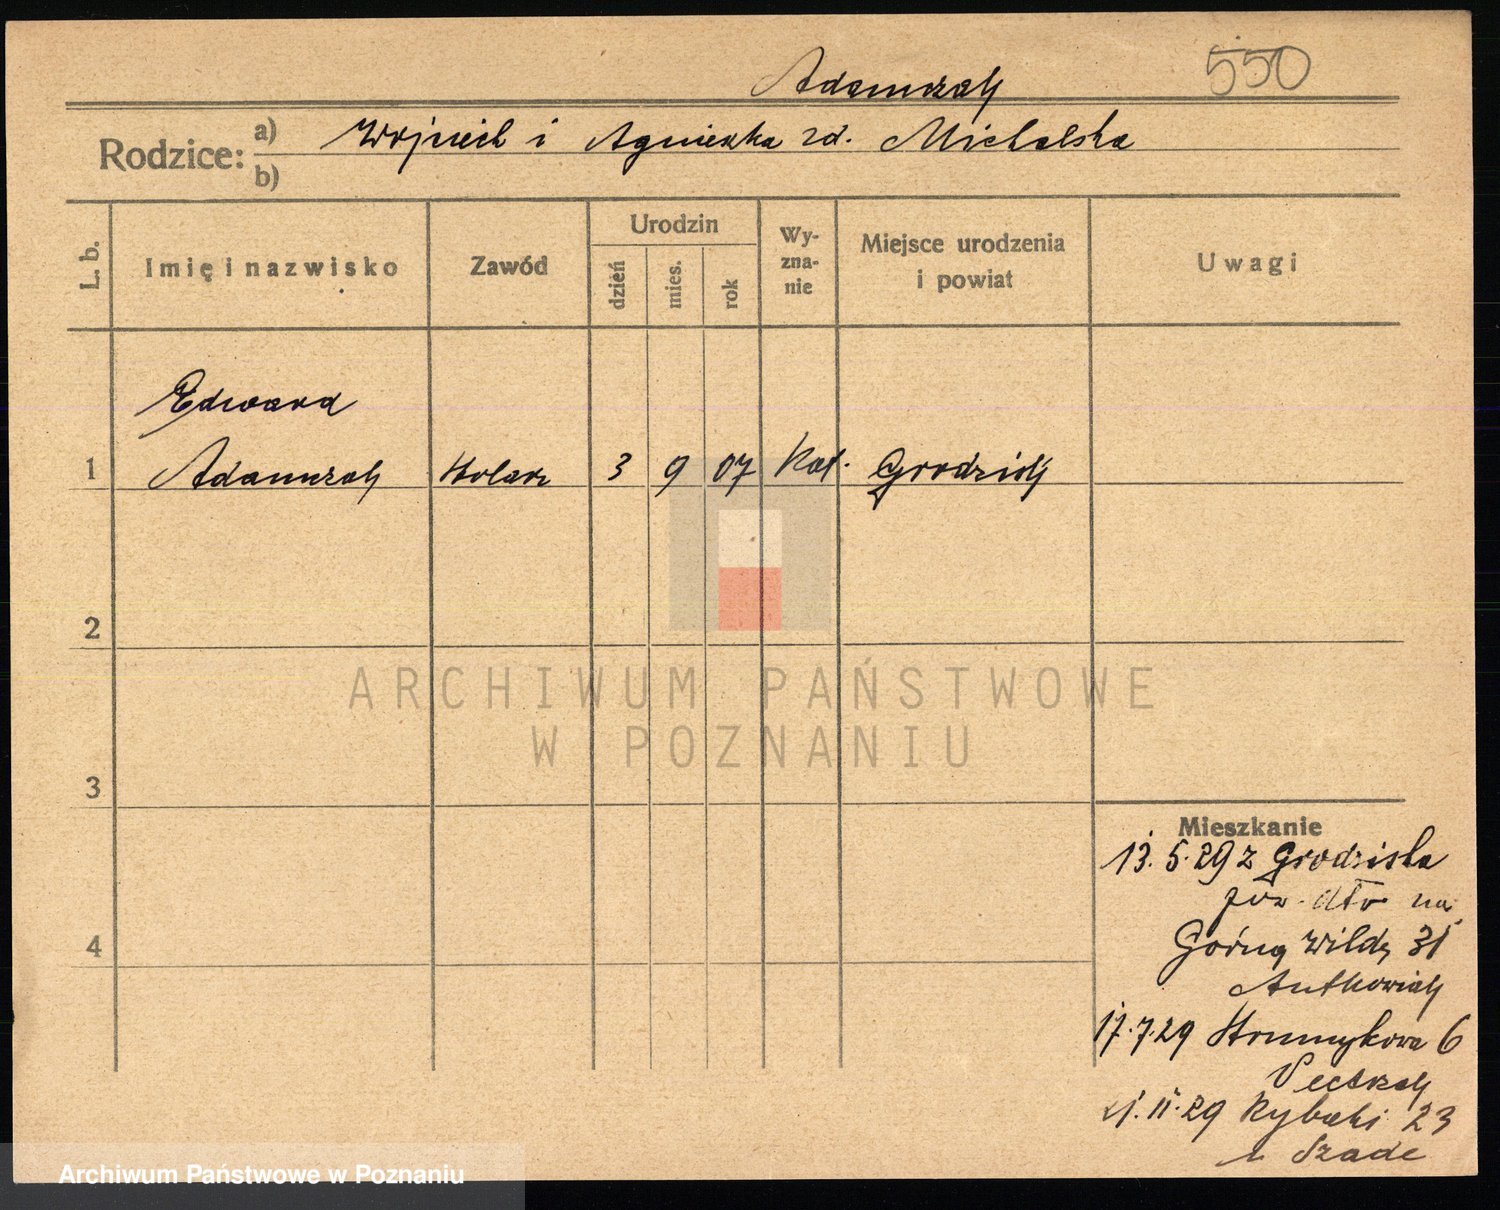 Adamczak
550
Rodzice:
a) Wojciech i Agnieszka zd. Michalska
b)
L. b.
Imię i nazwisko
Zawód
Urodzin
dzień
mies.
rok
Wy-
zna-
nie
Miejsce urodzenia
i powiat
Uwagi
Edward
1 Adamczak stolarz 3 9 07 Kat. Grodzisk
2
3
4
ARCHIWUM PAŃSTWOWE
W POZNANIU
Mieszkanie
13.5.29 z Grodziska
pow. dto na
Górną Wildę 31
Antkowiak
17.7.29 Strumykowa 6
21.11.29 Rybaki 23
Szade
Archiwum Państwowe w Poznaniu